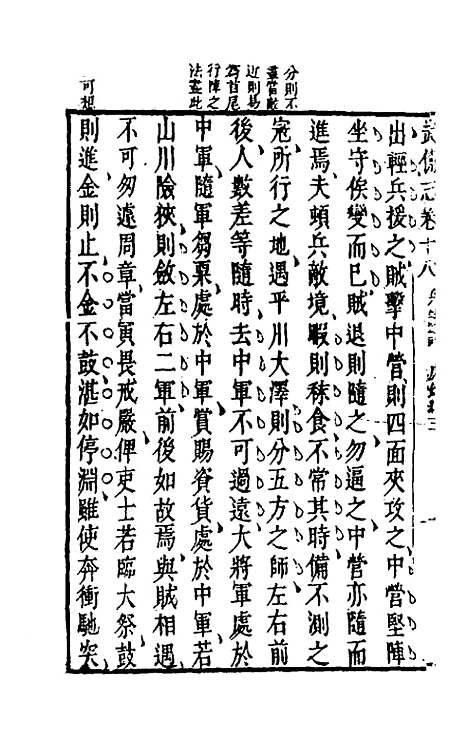 武備志卷十八
出輕兵援之賊擊中營則四面夾攻之中營堅陣
坐守俟變而已賊退則隨之勿逼之中營亦隨而
進焉夫頓兵敵境暇則秣食不常其時備不測之
寇所行之地遇平川大澤則分五方之師左右前
後人數差等隨時去中軍不可過遠大將軍處於
中軍隨軍芻粟處於中軍賞賜資貨處於中軍若
山川險狹則斂左右二軍前後如故焉與賊相遇
不可匆遽周章當夤畏戒嚴俾吏士若臨大祭鼓
則進金則止不金不鼓湛如停淵雖使奔衝馳突
分則不
盡當敵
近則易
為首尾
行陣之
法盡此
可想